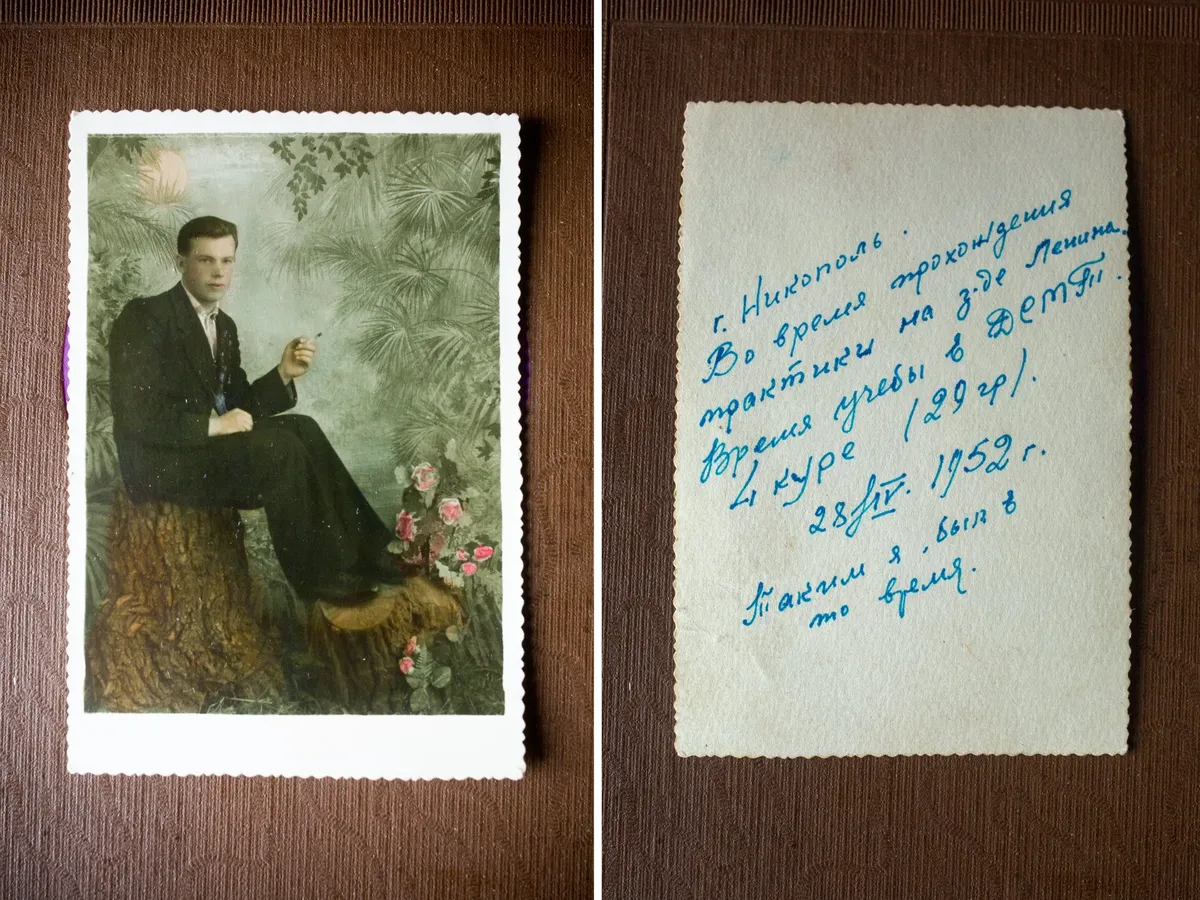 г. Никополь.
Во время прохождения
практики на з-де Ленина.
Время учебы в ДСМТ.
4 курс (29 гр).
28/IV. 1952 г.
Таким я был в
то время.